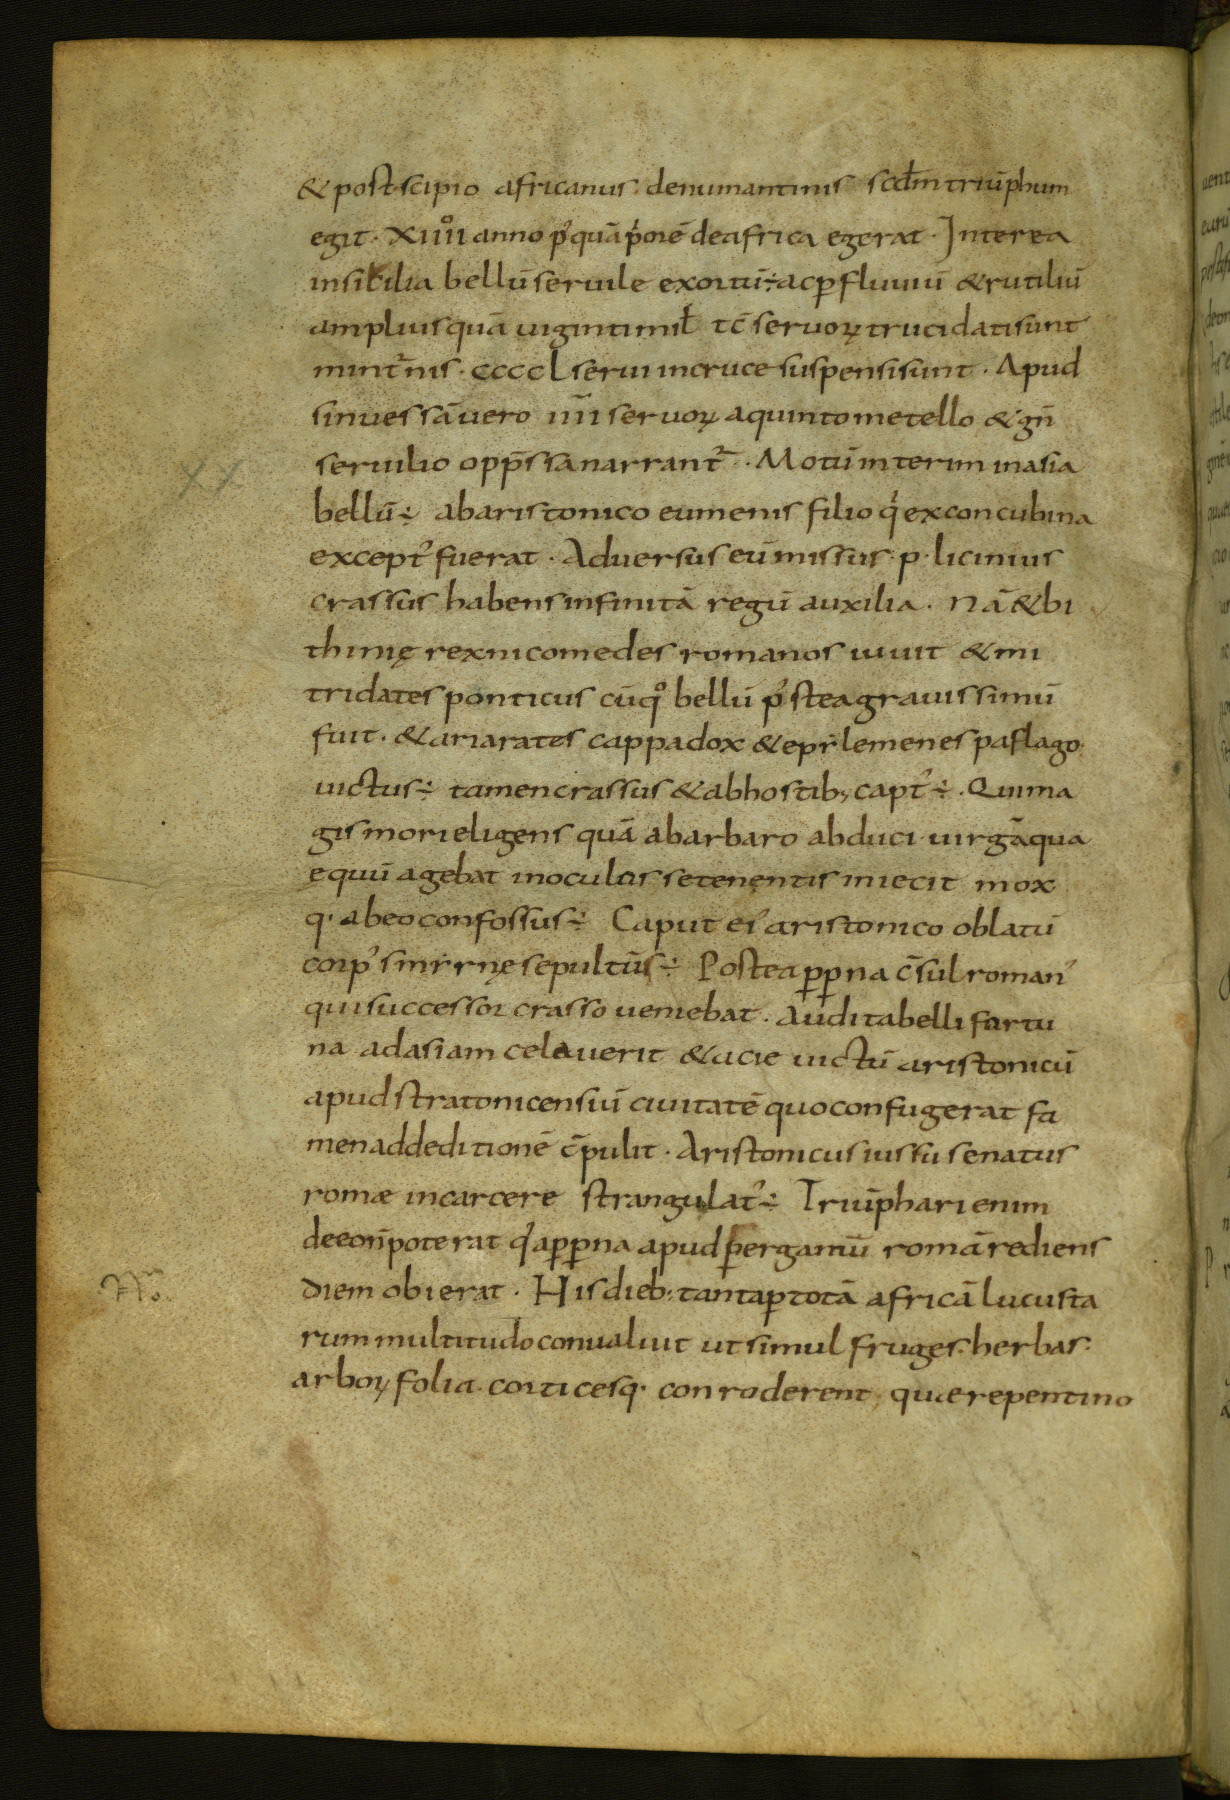 & post scipio africanus denumantinis scdm̄ triūphum
egit · XIIIIº anno p᾽quā p͛orē deafrica egerat · Interea
insicilia bellū seruile exortū ÷ acp̱ fluuiū & rutiliū
ampliusquā uigintimiƚ tc̄ seruoꝝ trucidatisunt
mint̄nis · ccccL serui incruce suspensisunt · Apud
sinuessā uero īīīī seruoꝝ aquintometello & gn̄
seruilio opp̄ssa narrant᷑ · Motū interim inasia
bellū ÷ abaristonico eumenis filio q͛ exconcubina
except᾽ fuerat · Aduersus eū missus · p · licinius
crassus habens infinitā regū auxilia · Nā & bi
thinię rex nicomedes romanos iuuit & mi
tridates ponticus cūqͦ bellū p᾽stea grauissimū
fuit · & ariarates cappadox & epẏlemenes paflago ·
uictus ÷ tamen crassus & abhostib; capt᾽ ÷ . Qui ma
gis mori eligens quā abarbaro abduci uirgā qua
equū agebat inoculos se tenentis iniecit mox
q· abeo confossus ÷ Caput ei᾽ aristonico oblatū
corp᾽ smẏrnę sepultūs ÷ Postea ꝑꝑna c̄sul roman᾽
qui successor crasso ueniebat . Audita belli fortu
na adasiam celauerit & acie uictū aristonicū
apud stratonicensiū ciuitatē quo confugerat fa
men addeditionē c̄pulit · Aristonicus iussu senatus
romæ incarcere strangulat᾽ ÷ Triūphari enim
deeo n̄ poterat q͛a ꝑꝑna apud pergamū romā rediens
diem obierat · His dieb; tanta ꝑ totā africā lucusta
rum multitudo conualuit ut simul fruges · herbas ·
arboꝝ folia · corticesq· conroderent quæ repentino
XX